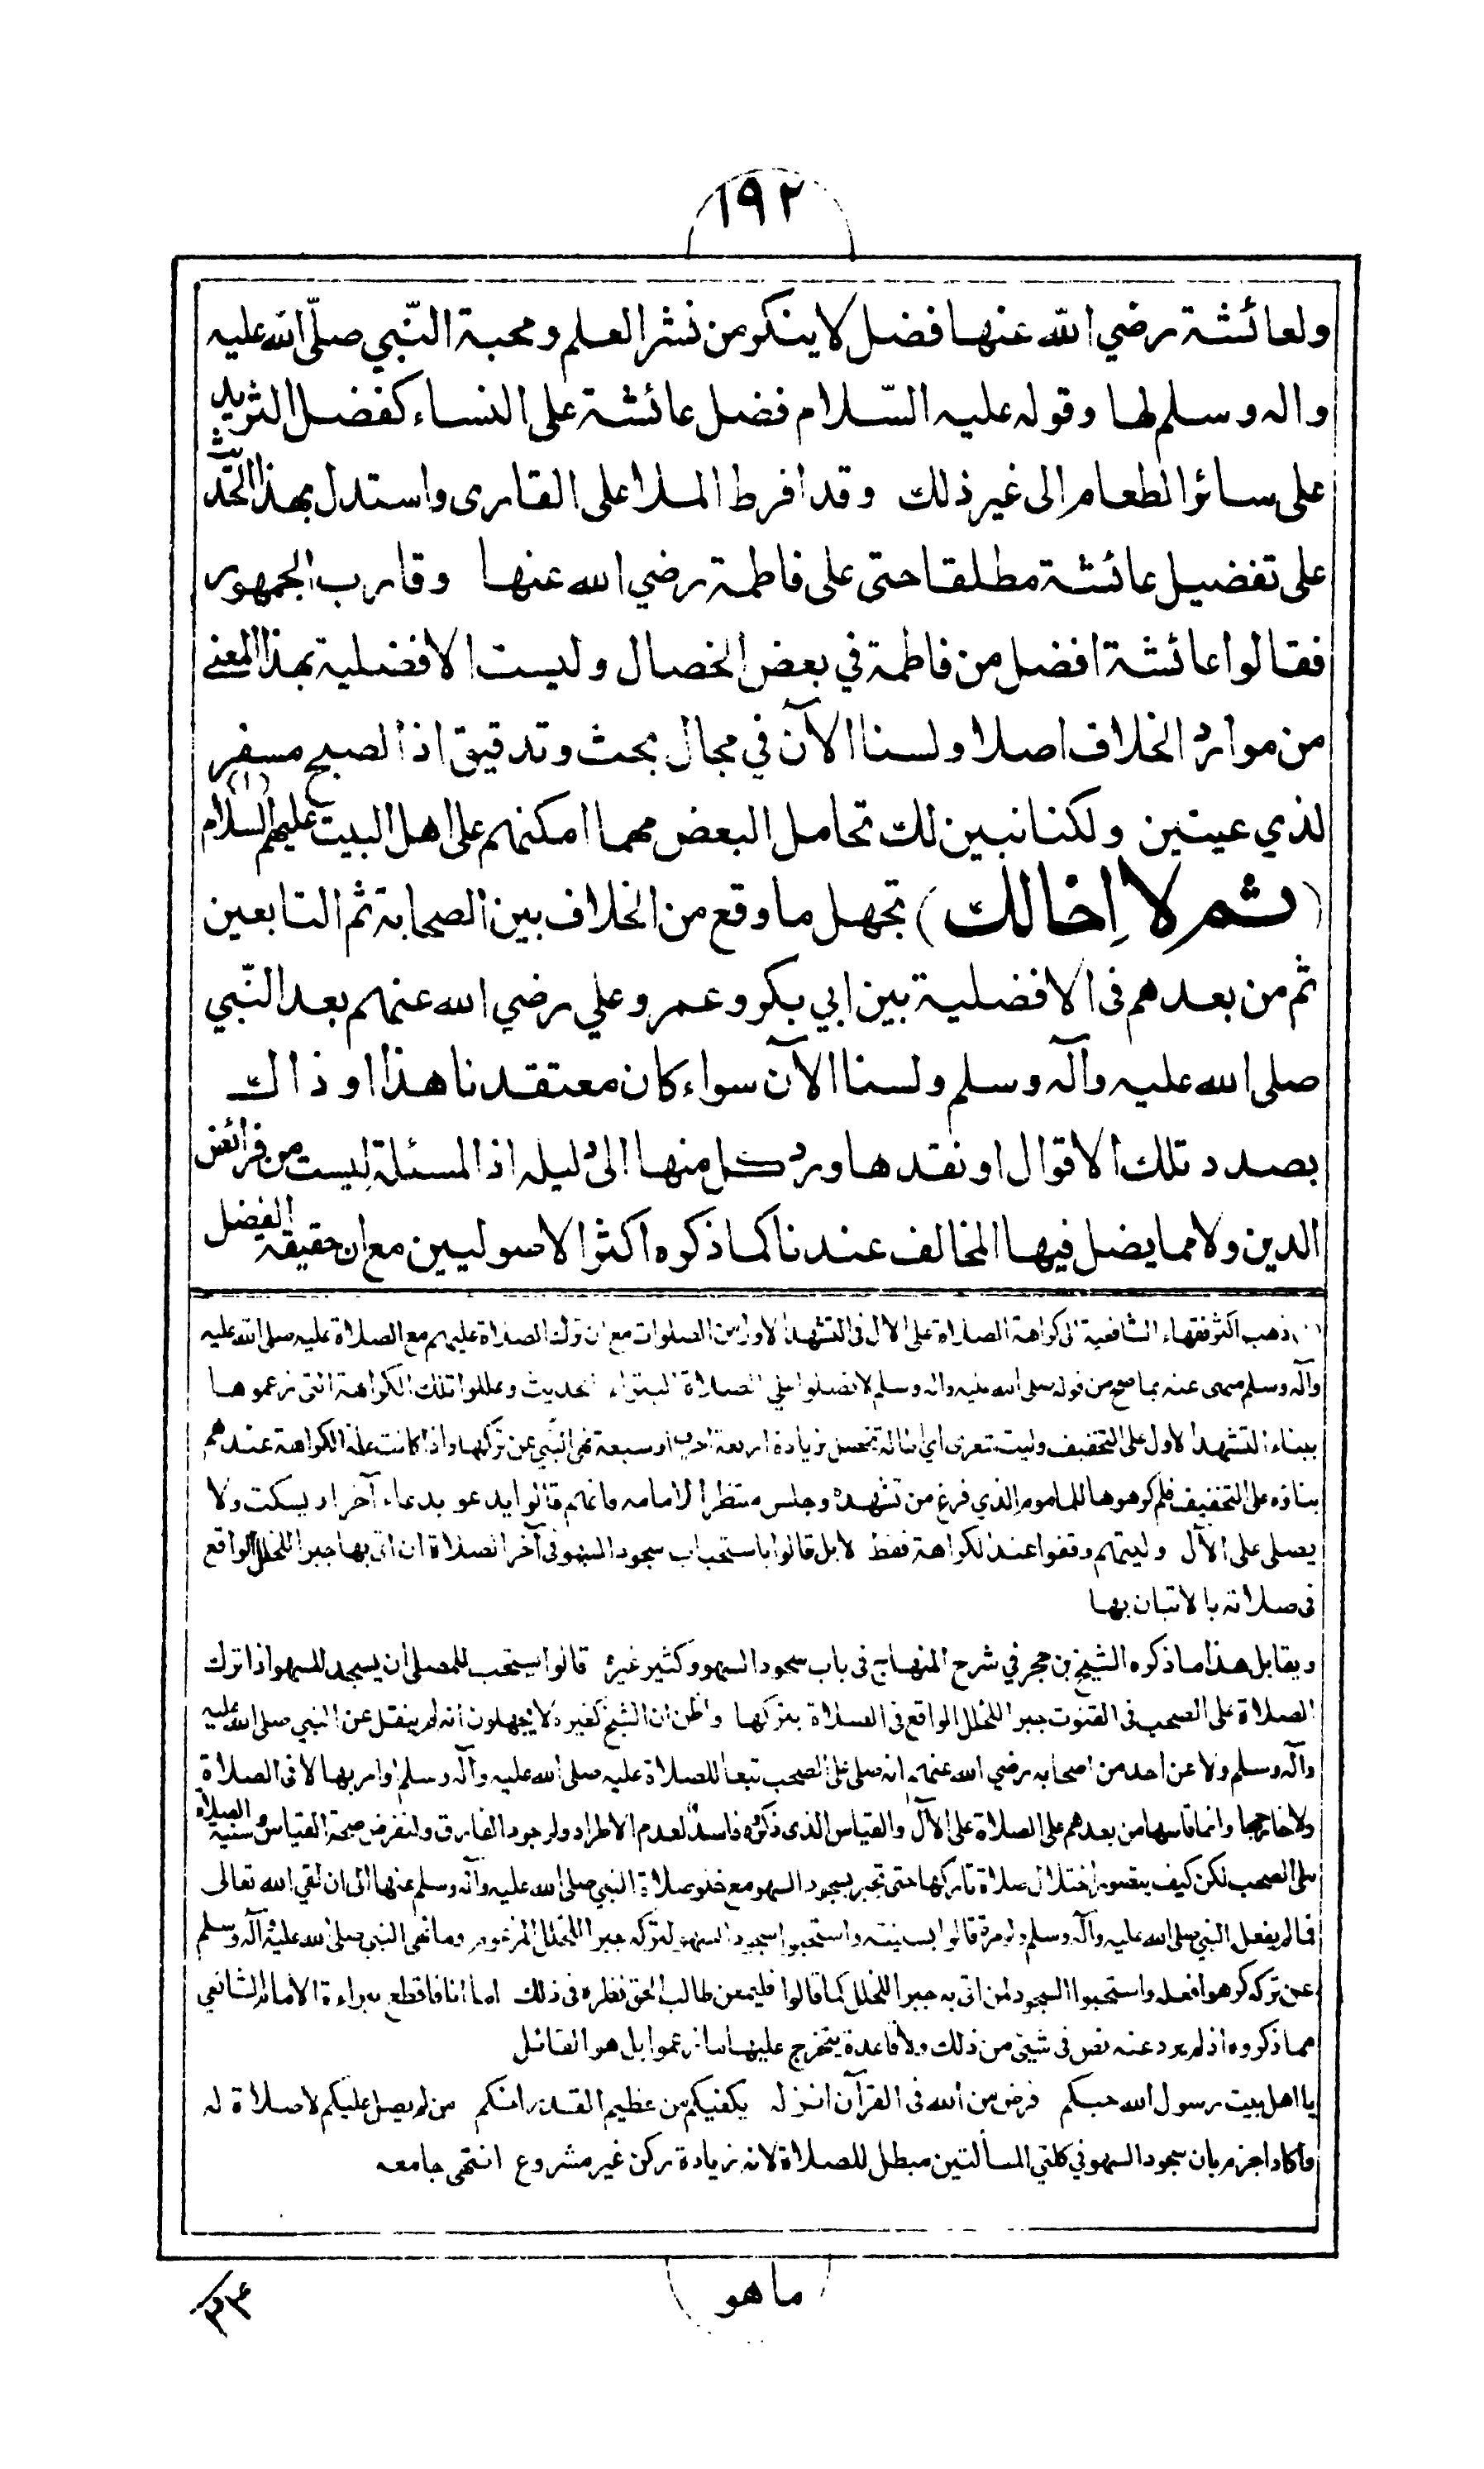 ١٩٢
ولعائشة رضي الله عنها فضل لاينكر من نشر العلم ومحبة النّبي صلّى الله عليه
واله وسلم لها وقوله عليه السّلام فضل عائشة على النساء كفضل الثريد
على سائر الطعام الى غير ذلك وقد افرط الملا على القارى واستدل بهذا الحديث
على تفضيل عائشة مطلقا حتى على فاطمة رضي الله عنها وقارب الجمهور
فقالوا عائشة افضل من فاطمة في بعض الخصال وليست الافضلية بهذا المعنى
من موارد الخلاف اصلا ولسنا الآن في مجال بحث وتدقيق اذ الصبح مسفر
لذي عينين ولكنا نبين لك تحامل البعض مهما امكنهم على اهل البيت عليهم السلام (١)
(ثم لا اِخالك) تجهل ما وقع من الخلاف بين الصحابة ثم التابعين
ثم من بعدهم فى الافضلية بين ابي بكر وعمر وعلي رضي الله عنهم بعد النّبي
صلى الله عليه وآله وسلم ولسنا الآن سواء كان معتقدنا هذا او ذاك
بصدد تلك الاقوال او نقدها ورد كل منها الى دليله اذ المسئلة ليست من فرائض
الدين ولا مما يضل فيها المخالف عندنا كما ذكره اكثر الاصوليين مع ان حقيقة الفضل
(١) ذهب اكثر فقهاء الشافعية الى كراهة الصلاة على الآل فى التشهد الاول من الصلوات مع ان ترك الصلاة عليهم مع الصلاة عليه صلى الله عليه
وآله وسلم منهى عنه بما صح من قوله صلى الله عليه واله وسلم لا تصلوا علي الصلاة البتراء الحديث وعللوا تلك الكراهة التى زعموها
ببناء التشهد الاول على التخفيف وليت شعرى اي اطالة تحصل بزيادة اربعة احرف او سبعة نهى النّبي عن تركها واذا كانت علة الكراهة عندهم
بناؤه على التخفيف فلم كرهوها للماموم الذي فرغ من تشهده وجلس منتظرا لامامه فانهم قالوا يدعو بدعاء آخر او يسكت ولا
يصلى على الآل وليتهم وقفوا عند الكراهة فقط لا بل قالوا باستحباب سجود السهو فى آخر الصلاة ان اتى بها جبرا للخلل الواقع
فى صلاته بالاتيان بها
ويقابل هذا ما ذكره الشيخ بن حجر في شرح المنهاج فى باب سجود السهو وكثير غيره قالوا يستحب للمصلى ان يسجد للسهو اذا ترك
الصلاة على الصحب فى القنوت جبرا للخلل الواقع فى الصلاة بتركها واظن ان الشيخ كغيره لا يجهلون انه لم ينقل عن النبي صلى الله عليه
وآله وسلم ولا عن احد من اصحابه رضي الله عنهم انه صلى على الصحب تبعا للصلاة عليه صلى الله عليه وآله وسلم او امر بها لا فى الصلاة
ولا خارجها وانما قاسها من بعدهم على الصلاة على الآل والقياس الذى ذكروه فاسد لعدم الاطراد ولوجود الفارق ولنفرض صحة القياس وسنية الصلاة
على الصحب لكن كيف يتصور اختلال صلاة تاركها حتى تجبر بسجود السهو مع خلو صلاة النبي صلى الله عليه وآله وسلم عنها الى ان لقي الله تعالى
فما لم يفعل النبي صلى الله عليه وآله وسلم ولو مرة قالوا بسنيته واستحبوا سجود السهو لتركه جبرا للخلل المزعوم وما نهى النبي صلى الله عليه وآله وسلم
عن تركه كرهوا فعله واستحبوا السجود لمن اتى به جبرا للخلل كما قالوا فليمعن طالب الحق نظره فى ذلك اما انا فاقطع ببراءة الامام الشافعي
مما ذكروه اذ لم يرد عنه نص فى شيئ من ذلك ولا قاعدة يتخرج عليها ما زعموا بل هو القائل
يا اهل بيت رسول الله حبكم فرض من الله فى القرآن انزله يكفيكم من عظيم القدر انكم من لم يصل عليكم لا صلاة له
واكاد اجزم بان سجود السهو في كلتي المسألتين مبطل للصلاة لانه زيادة ركن غير مشروع انتهى جامعه
ماهو